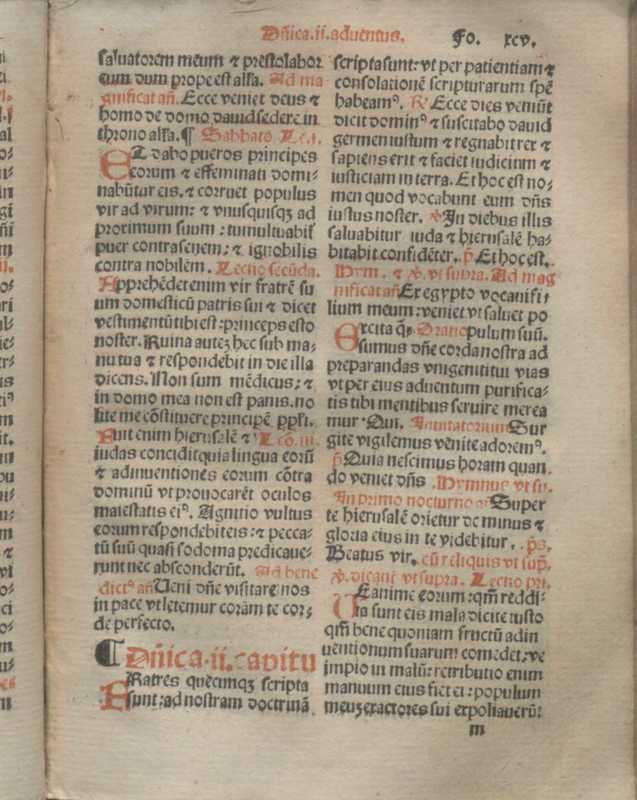 Dñica.ii.aduentus. Fo. xcv.
saluatorem meum & prestolabor
eum dum prope est alľa. Ad ma
gnificat añ. Ecce veniet deus &
homo de domo dauid sedere in
throno alľa. ¶ Sabbato. Lc.i.
ET dabo pueros principes
eorum & effeminati domi-
nabũtur eis. & corruet populus
vir ad virum: & vnusquisqʒ ad
proximum suum: tumultuabiť
puer contra senem: & ignobilis
contra nobilẽ. Lectio secũda.
Apprehẽdet enim vir fratrẽ su
um domesticũ patris sui & dicet
vestimentũ tibi est: princeps esto
noster. Ruina autez hec sub ma-
nu tua & respondebit in die illa
dicens. Non sum mẽdicus: &
in domo mea non est panis. no
lite me cõstituere principẽ ppľi.
Ruit enim hierusalẽ & Lcõ.iii.
iudas concidit quia lingua eorũ
& adinuentiones eorum cõtra
dominũ vt prouocarẽt oculos
maiestatis eiꝰ. Agnitio vultus
eorum respondebit eis: & pecca-
tũ suũ quasi sodoma predicaue-
runt nec absconderũt. Ad bene
dictꝰ añ Ueni dñe visitare nos
in pace vt letemur corãm te cor-
de perfecto.
¶ Dñica.ii.capitu
FRatres quecunqʒ scripta
sunt: ad nostram doctrinã
scripta sunt: vt per patientiam &
consolationẽ scripturarum spẽ
habeamꝰ. ℟ Ecce dies veniũt
dicit dominꝰ & suscitabo dauid
germen iustum & regnabit rex &
sapiens erit & faciet iudicium &
iusticiam in terra. Et hoc est no-
men quod vocabunt eum dñs
iustus noster. ℣ In diebus illis
saluabitur iuda & hierusalẽ ha-
bitabit confidẽter. p̃. Et hoc est.
Hym. & ℣. vt supra. Ad mag
nificat añ Ex egypto vocaui fi-
lium meum: veniet vt saluet po
pulum suũ. Oratio
Excita q̃s
sumus dñe corda nostra ad
preparandas vnigenititui vias
vt per eius aduentum purifica-
tis tibi mentibus seruire merea
mur. Qui. Inuitatorium Sur
gite vigilemus venite adoremꝰ.
p̃. Quia nescimus horam quan
do veniet dñs. Hymnus vt su.
In primo nocturno añ Super
te hierusalẽ orietur dominus &
gloria eius in te videbitur. p̃s.
Beatus vir. cũ reliquis vt sup̃.
℣. dicant vt supra. Lectio pri.
Ue anime eorum: qm̃ reddi-
ta sunt eis mala dicite iusto
qm̃ bene quoniam fructũ adin
uentionum suarum comedet: ve
impio in malũ: retributio enim
manuum eius fiet ei: populum
meuʒ exactores sui expoliauerũt
m